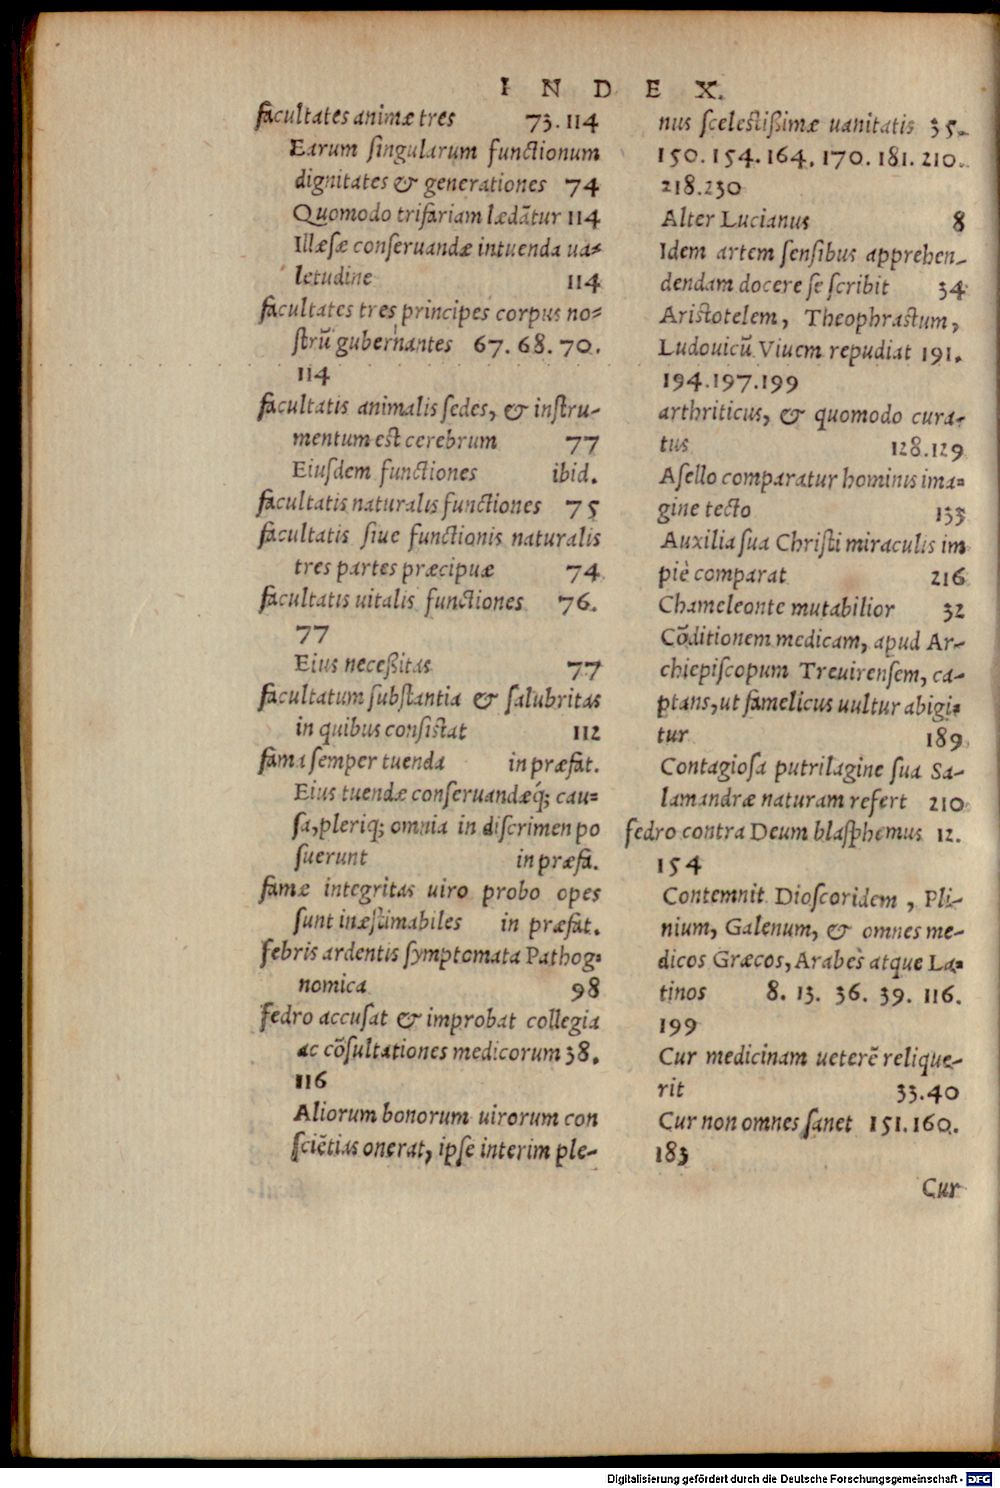 INDEX.
facultates animæ tres 73.114
Earum ſingularum functionum
dignitates & generationes 74
Quomodo trifariam lædātur 114
Illæſæ conſeruandæ intuenda ua-
letudine 114
facultates tres principes corpus no-
ſtrū gubernantes 67. 68. 70.
114
facultatis animalis ſedes, & inſtru-
mentum est cerebrum 77
Eiuſdem functiones ibid.
facultatis naturalis functiones 75
facultatis ſiue functionis naturalis
tres partes præcipuæ 74
facultatis uitalis functiones 76.
77
Eius neceßitas 77
facultatum ſubſtantia & ſalubritas
in quibus conſistat 112
fama ſemper tuenda in præfat.
Eius tuendæ conſeruandæq́; cau-
ſa, pleriq; omnia in diſcrimen po
ſuerunt in præfa.
famæ integritas uiro probo opes
ſunt inæſtimabiles in præfat.
febris ardentis ſymptomata Pathog-
nomica 98
fedro accuſat & improbat collegia
ac cōſultationes medicorum 38.
116
Aliorum bonorum uirorum con
ſciētias onerat, ipſe interim ple-
nus ſceleſtißimæ uanitatis 35.
150. 154. 164. 170. 181. 210.
218.230
Alter Lucianus 8
Idem artem ſenſibus apprehen-
dendam docere ſe ſcribit 34
Ariſtotelem, Theophraſtum,
Ludouicū Viuem repudiat 191.
194.197.199
arthriticus, & quomodo cura-
tus 128.129
Aſello comparatur hominis ima-
gine tecto 133
Auxilia ſua Chriſti miraculis im
piè comparat 216
Chameleonte mutabilior 32
Cōditionem medicam, apud Ar-
chiepiſcopum Treuirenſem, ca-
ptans, ut famelicus uultur abigi-
tur 189
Contagioſa putrilagine ſua Sa-
lamandræ naturam refert 210
fedro contra Deum blaſphemus 12.
154
Contemnit Dioſcoridem, Pli-
nium, Galenum, & omnes me-
dicos Græcos, Arabes atque La-
tinos 8. 13. 36. 39. 116.
199
Cur medicinam ueterē relique-
rit 33.40
Cur non omnes ſanet 151.160.
183
Cur
Digitalisierung gefördert durch die Deutsche Forschungsgemeinschaft - DFG